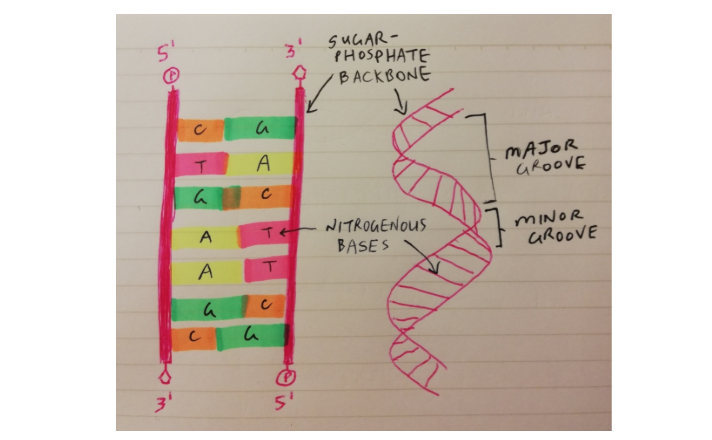 5'
3'
P
SUGAR-
PHOSPHATE
BACKBONE
C G
T A
G C
A T
A T
G C
C G
NITROGENOUS
BASES
MAJOR
GROOVE
MINOR
GROOVE
P
3'
5'